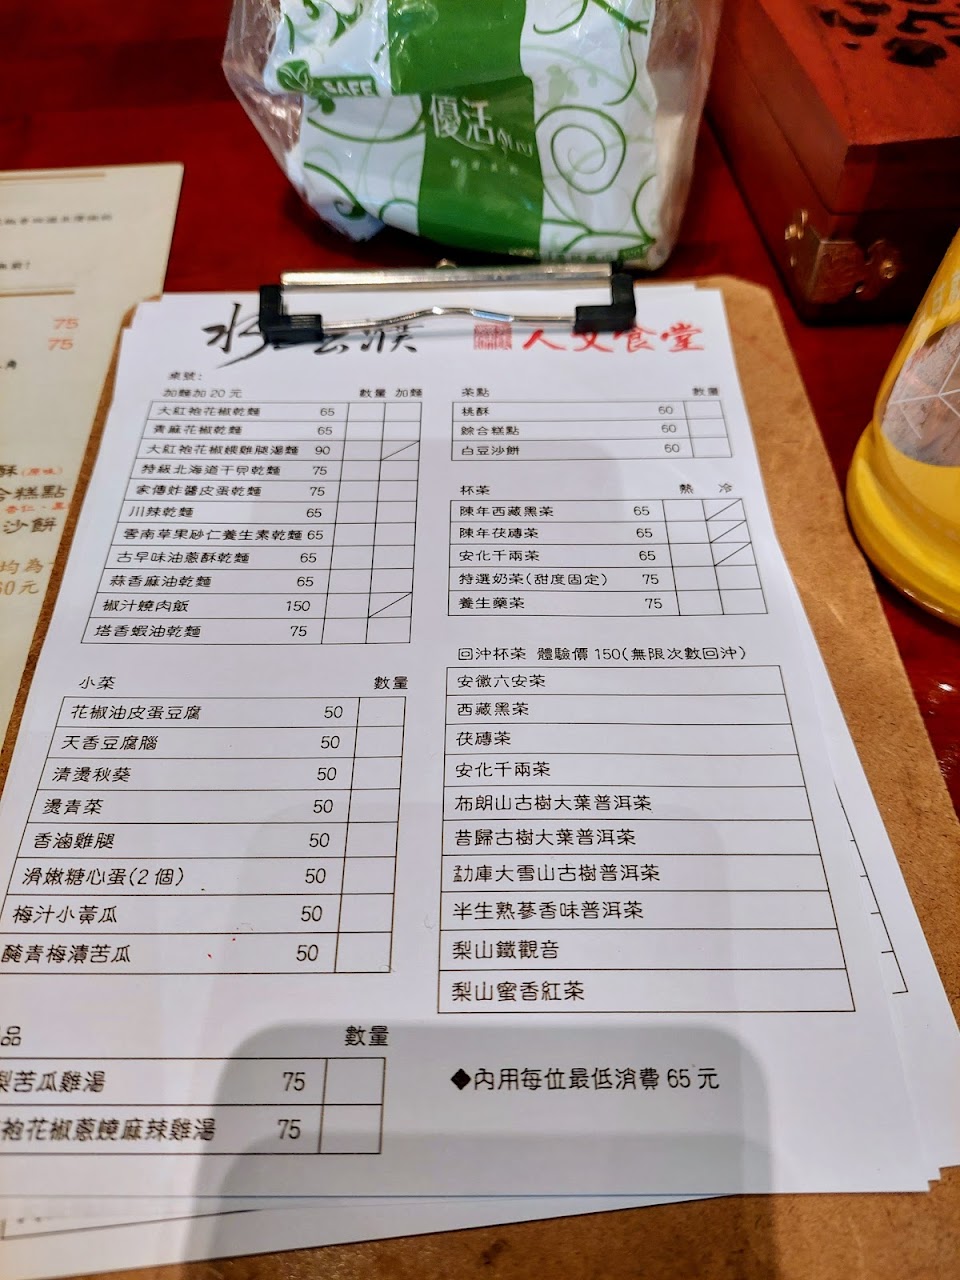 SAFE
優活
75
75
酥(原味)
合糕點
沙餅
均為
60元
水雲滸 人文食堂
桌號:
加麵加20元 數量 加麵
大紅袍花椒乾麵 65
青麻花椒乾麵 65
大紅袍花椒嫩雞腿湯麵 90
特級北海道干貝乾麵 75
家傳炸醬皮蛋乾麵 75
川辣乾麵 65
雲南草果砂仁養生素乾麵 65
古早味油蔥酥乾麵 65
蒜香麻油乾麵 65
椒汁燒肉飯 150
塔香蝦油乾麵 75
小菜 數量
花椒油皮蛋豆腐 50
天香豆腐腦 50
清燙秋葵 50
燙青菜 50
香滷雞腿 50
滑嫩糖心蛋(2個) 50
梅汁小黃瓜 50
醃青梅漬苦瓜 50
品 數量
梨苦瓜雞湯 75
袍花椒蔥燒麻辣雞湯 75
茶點 數量
桃酥 60
綜合糕點 60
白豆沙餅 60
杯茶 熱 冷
陳年西藏黑茶 65
陳年茯磚茶 65
安化千兩茶 65
特選奶茶(甜度固定) 75
養生藥茶 75
回沖杯茶 體驗價150(無限次數回沖)
安徽六安茶
西藏黑茶
茯磚茶
安化千兩茶
布朗山古樹大葉普洱茶
昔歸古樹大葉普洱茶
勐庫大雪山古樹普洱茶
半生熟蔘香味普洱茶
梨山鐵觀音
梨山蜜香紅茶
◆內用每位最低消費65元